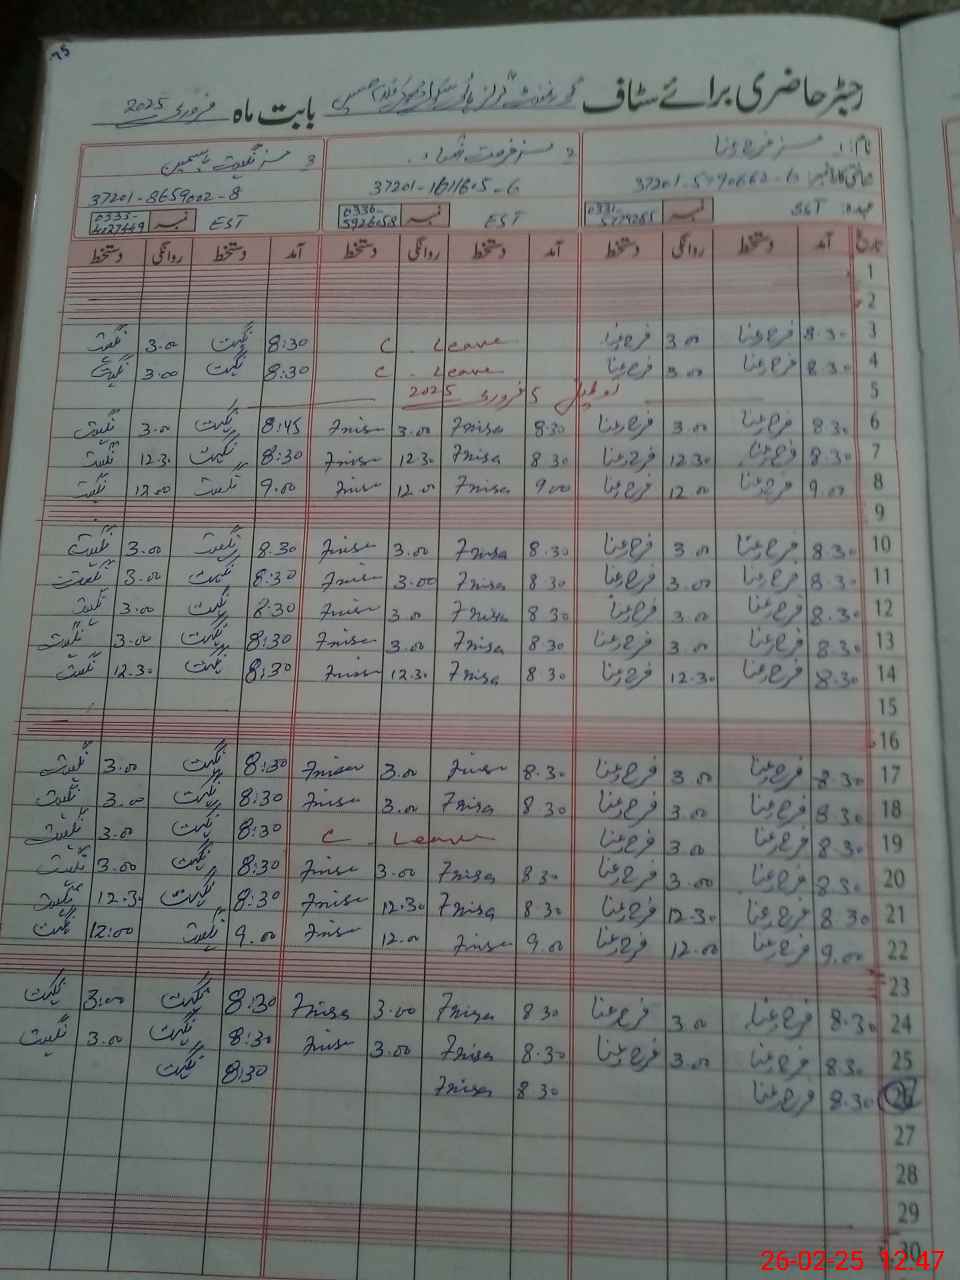 75
رجسٹر حاضری برائے سٹاف گورنمنٹ گرلز ہائی سکول
بابت ماہ فروری 2025
نام: 1. مسز فرح رعنا
2 مسز فرحت
3 مسز نگہت یاسمین
شناختی کارڈ نمبر:
37201-1611605-6
37201-8659002-8
عہدہ: SST نمبر
EST نمبر 0336-5926058
EST نمبر 0335-4027449
تاریخ آمد دستخط روانگی دستخط آمد دستخط روانگی دستخط آمد دستخط روانگی دستخط
1
2
3 8.30 فرح رعنا 3.00 فرح رعنا C. Leave 8:30 نگہت 3.00 نگہت
4 8.30 فرح رعنا 3.00 فرح رعنا C. Leave 8:30 نگہت 3.00 نگہت
5 تعطیل 5 فروری 2025
6 8.30 فرح رعنا 3.00 فرح رعنا 8.30 7nisa 3.00 7nisa 8:45 نگہت 3.00 نگہت
7 8.30 فرح رعنا 12.30 فرح رعنا 8.30 7nisa 12.30 7nisa 8:30 نگہت 12.30 نگہت
8 9.00 فرح رعنا 12.00 فرح رعنا 9.00 7nisa 12.00 7nisa 9.00 نگہت 12.00 نگہت
9
10 8.30 فرح رعنا 3.00 فرح رعنا 8.30 7nisa 3.00 7nisa 8.30 نگہت 3.00 نگہت
11 8.30 فرح رعنا 3.00 فرح رعنا 8.30 7nisa 3.00 7nisa 8:30 نگہت 3.00 نگہت
12 8.30 فرح رعنا 3.00 فرح رعنا 8.30 7nisa 3.00 7nisa 8:30 نگہت 3.00 نگہت
13 8.30 فرح رعنا 3.00 فرح رعنا 8.30 7nisa 3.00 7nisa 8:30 نگہت 3.00 نگہت
14 8.30 فرح رعنا 12.30 فرح رعنا 8.30 7nisa 12.30 7nisa 8:30 نگہت 12.30 نگہت
15
16
17 8.30 فرح رعنا 3.00 فرح رعنا 8.30 7nisa 3.00 7nisa 8:30 نگہت 3.00 نگہت
18 8.30 فرح رعنا 3.00 فرح رعنا 8.30 7nisa 3.00 7nisa 8:30 نگہت 3.00 نگہت
19 8.30 فرح رعنا 3.00 فرح رعنا C. Leave 8:30 نگہت 3.00 نگہت
20 8.30 فرح رعنا 3.00 فرح رعنا 8.30 7nisa 3.00 7nisa 8:30 نگہت 3.00 نگہت
21 8.30 فرح رعنا 12.30 فرح رعنا 8.30 7nisa 12.30 7nisa 8:30 نگہت 12.30 نگہت
22 9.00 فرح رعنا 12.00 فرح رعنا 9.00 7nisa 12.00 7nisa 9.00 نگہت 12:00 نگہت
23
24 8.30 فرح رعنا 3.00 فرح رعنا 8.30 7nisa 3.00 7nisa 8:30 نگہت 3:00 نگہت
25 8.30 فرح رعنا 3.00 فرح رعنا 8.30 7nisa 3.00 7nisa 8:30 نگہت 3.00 نگہت
26 8.30 فرح رعنا 8.30 7nisa 8:30 نگہت
27
28
29
30
26-02-25 12:47